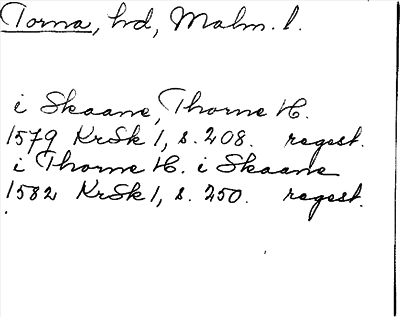 Torna, hd, Malm. l.
i Skaane, Thorne H.
1579 KrSk 1, s. 208. regest.
i Thorne H. i Skaane
1582 KrSk 1, s. 250. regest.